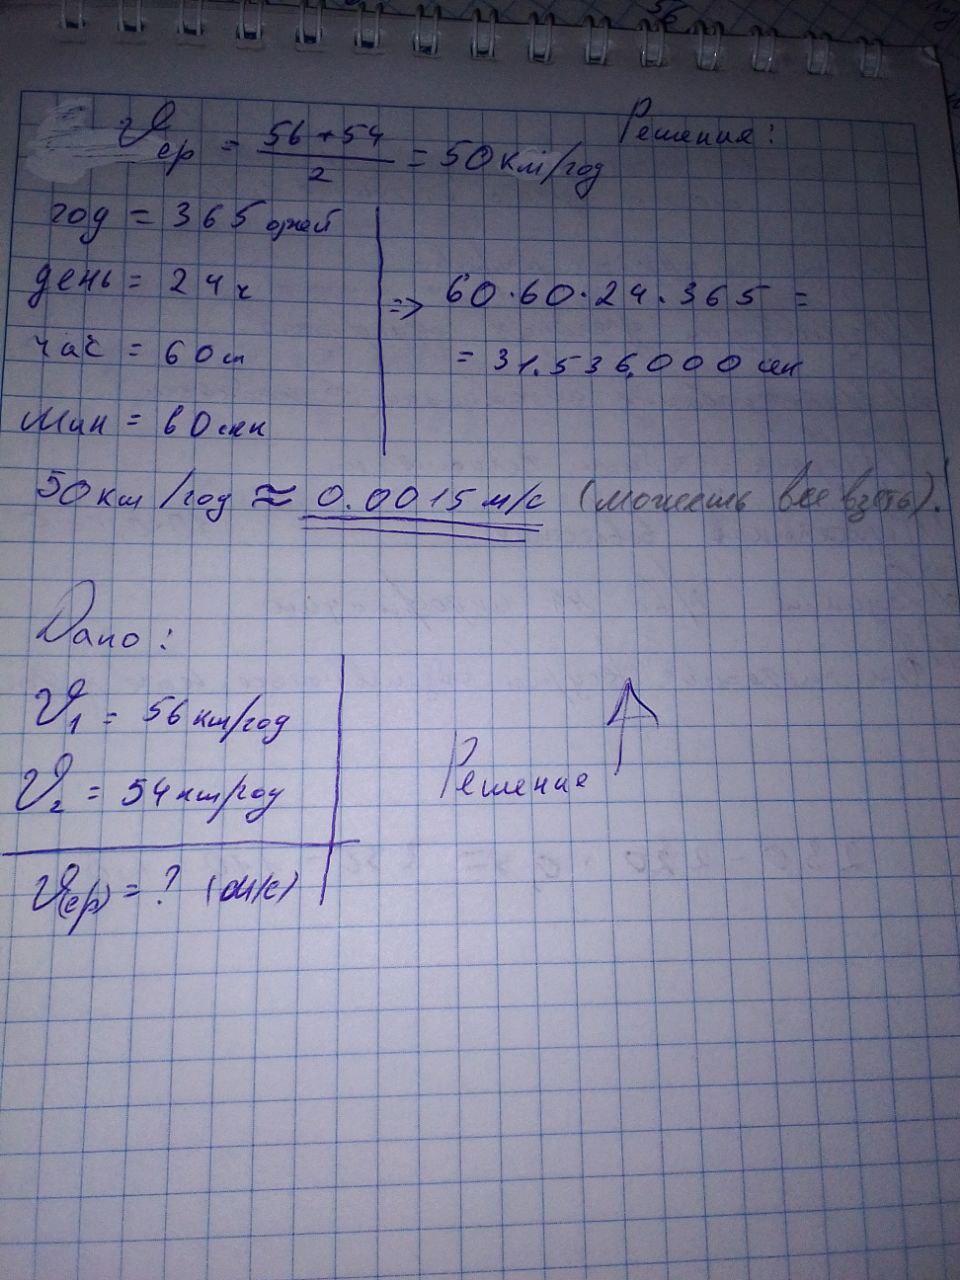 Решение:
Vср = 56+54 / 2 = 50 км/год
год = 365 дней
день = 24 ч
час = 60 м
мин = 60 сек
=> 60·60·24·365 =
= 31.536.000 сек
50 км/год ≈ 0.0015 м/с (можешь все взять).
Дано:
V1 = 56 км/год
V2 = 54 км/год
V(ср) = ? (м/с)
Решение